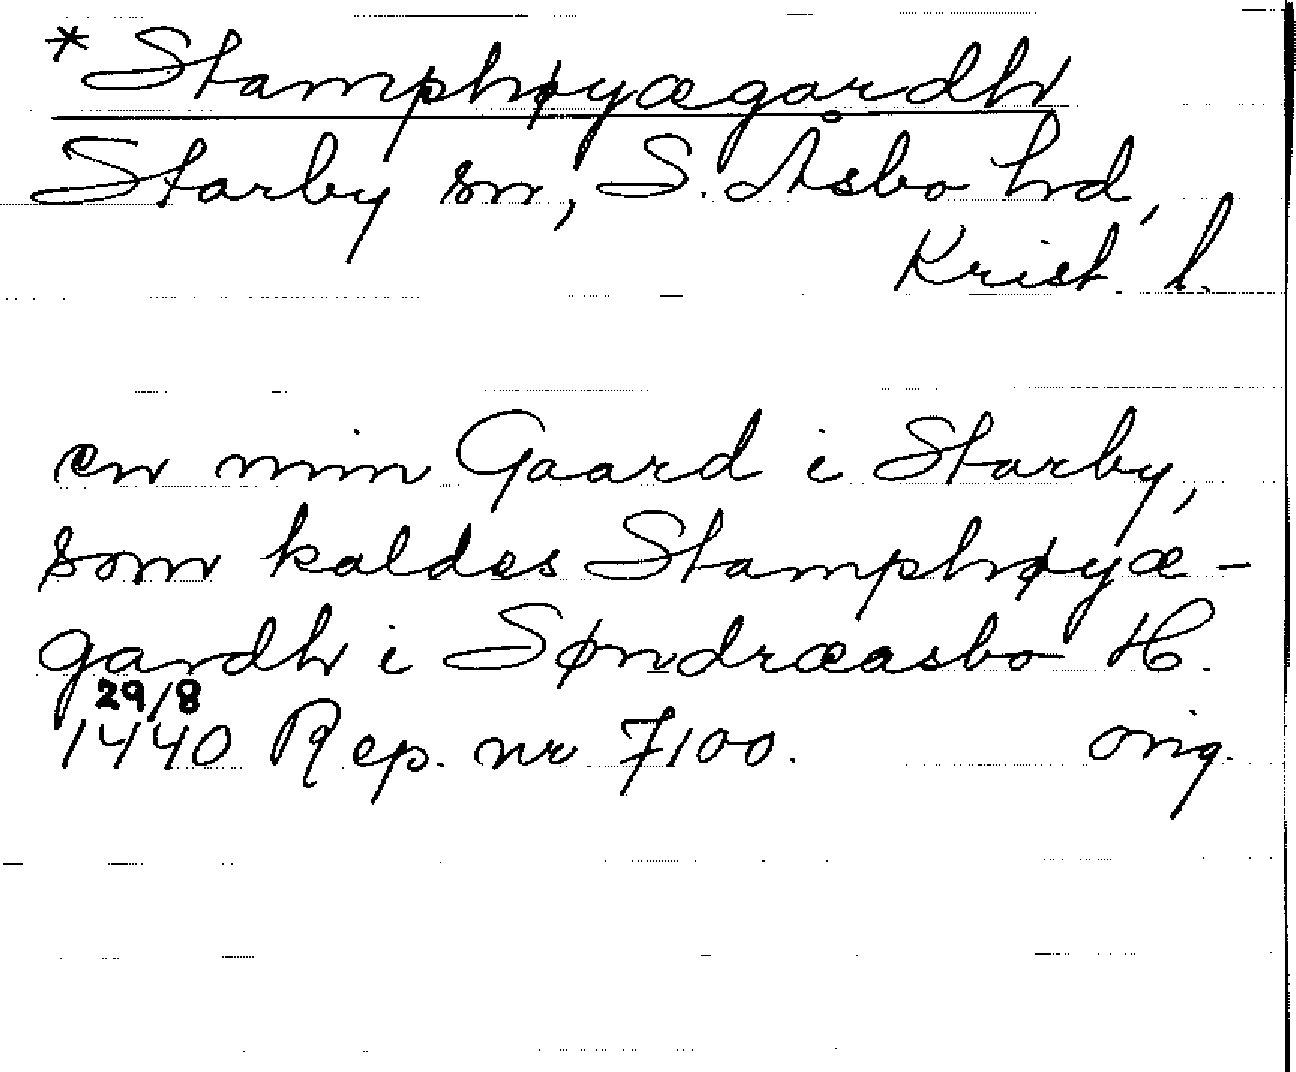 *Stamphøyægardh
Starby sn, S. Åsbo hd,
Krist. l.
en min Gaard i Starby,
som kaldes Stamphøyæ-
gardh i Søndræasbo H.
29/8
1440 Rep. nr 7100. orig.